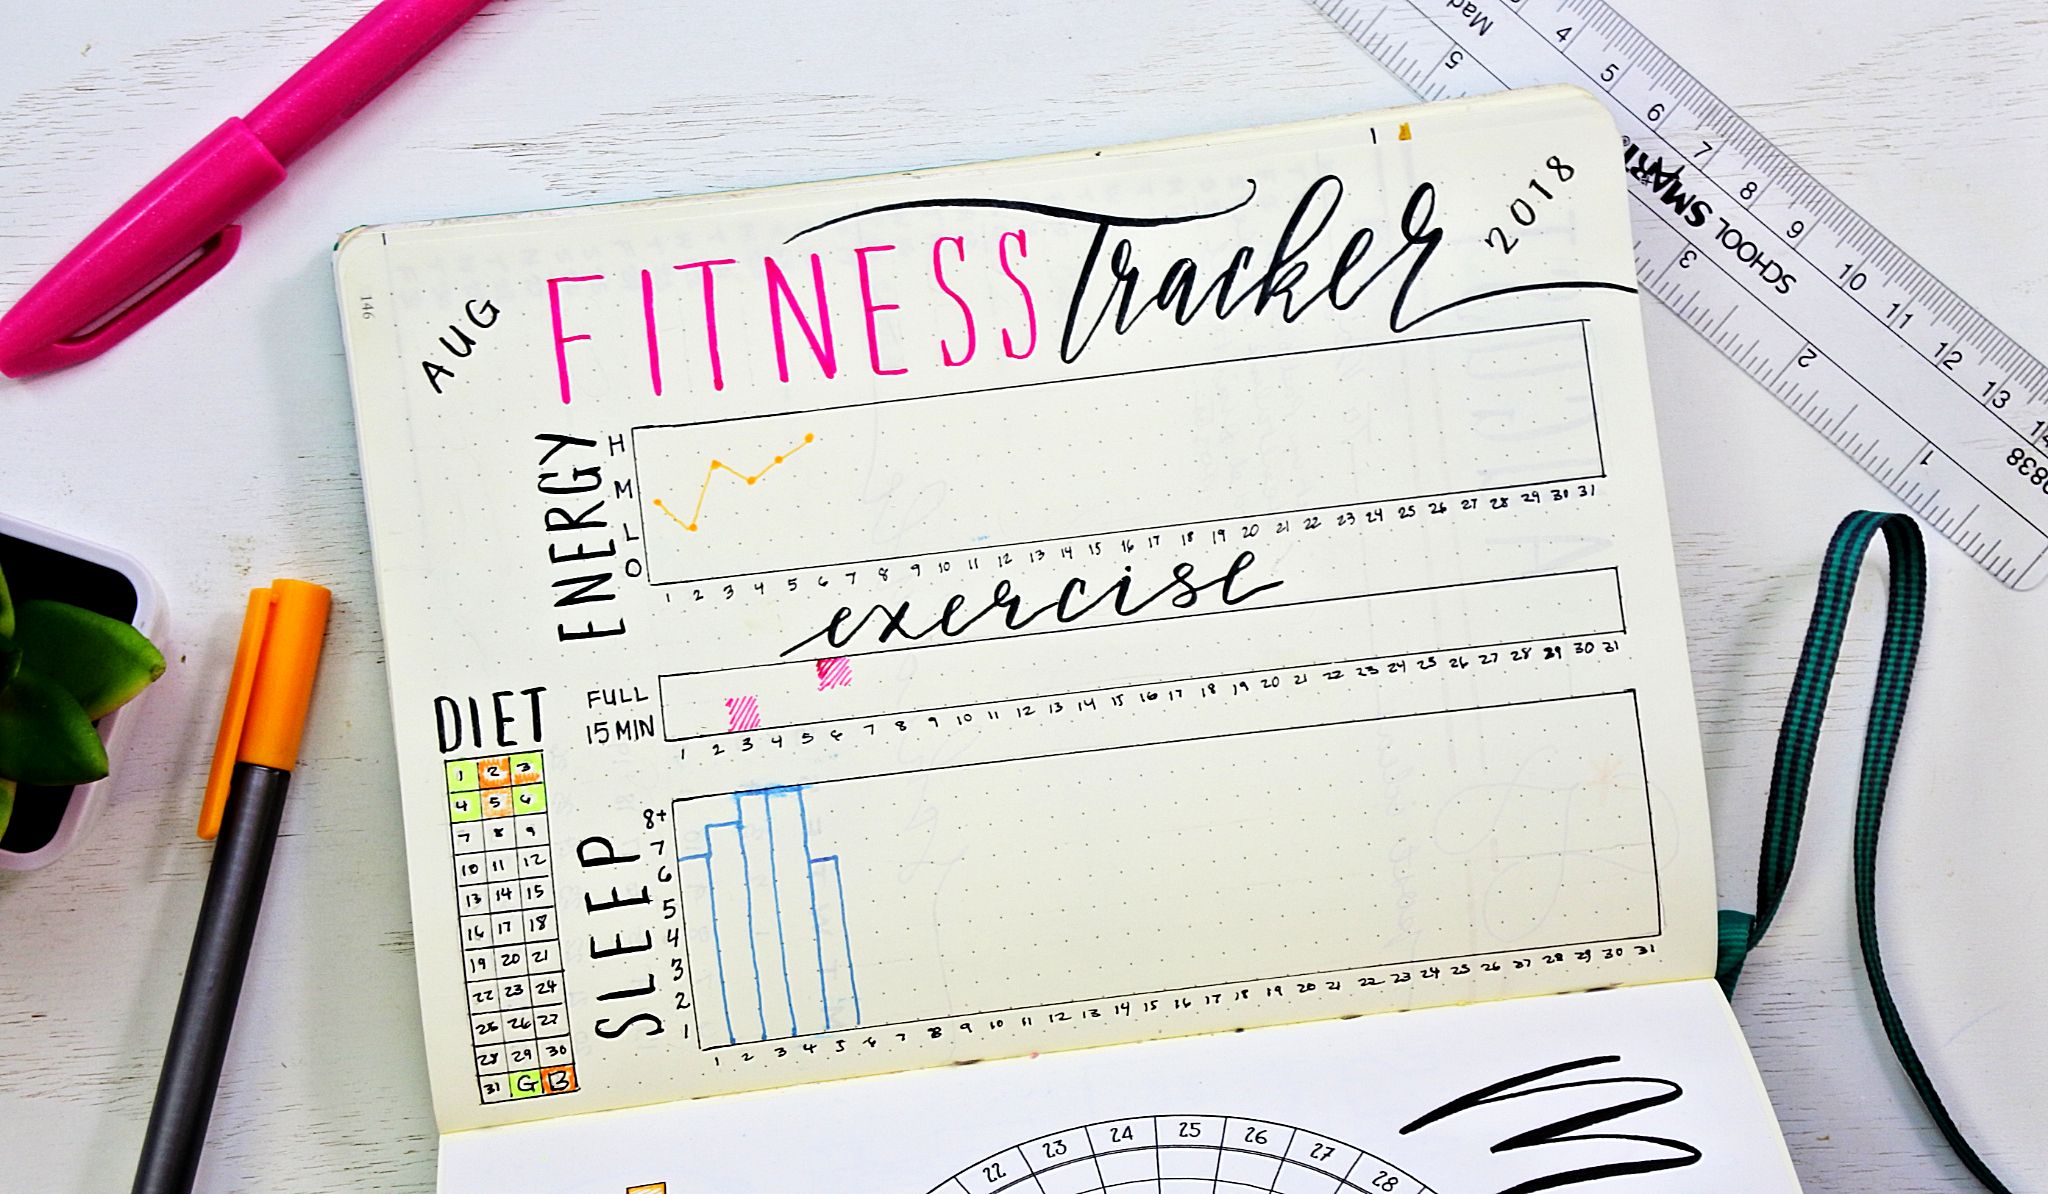 146
AUG
FITNESS Tracker
2018
ENERGY
H
M
L
O
1 2 3 4 5 6 7 8 9 10 11 12 13 14 15 16 17 18 19 20 21 22 23 24 25 26 27 28 29 30 31
exercise
FULL
15 MIN
1 2 3 4 5 6 7 8 9 10 11 12 13 14 15 16 17 18 19 20 21 22 23 24 25 26 27 28 29 30 31
DIET
1 2 3
4 5 6
7 8 9
10 11 12
13 14 15
16 17 18
19 20 21
22 23 24
25 26 27
28 29 30
31 G B
SLEEP
8+
7
6
5
4
3
2
1
1 2 3 4 5 6 7 8 9 10 11 12 13 14 15 16 17 18 19 20 21 22 23 24 25 26 27 28 29 30 31
22 23 24 25 26 27 28
4 5 6 7 8 9 10 11 12 13 14
SCHOOL SMART
Mad
5 3 2 1